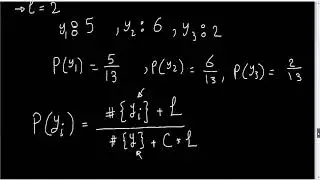 → l = 2
y₁ : 5 , y₂ : 6 , y₃ : 2
P(y₁) = 5/13 , P(y₂) = 6/13 , P(y₃) = 2/13
P(yᵢ) = (#{yᵢ} + l) / (#{y} + C * l)